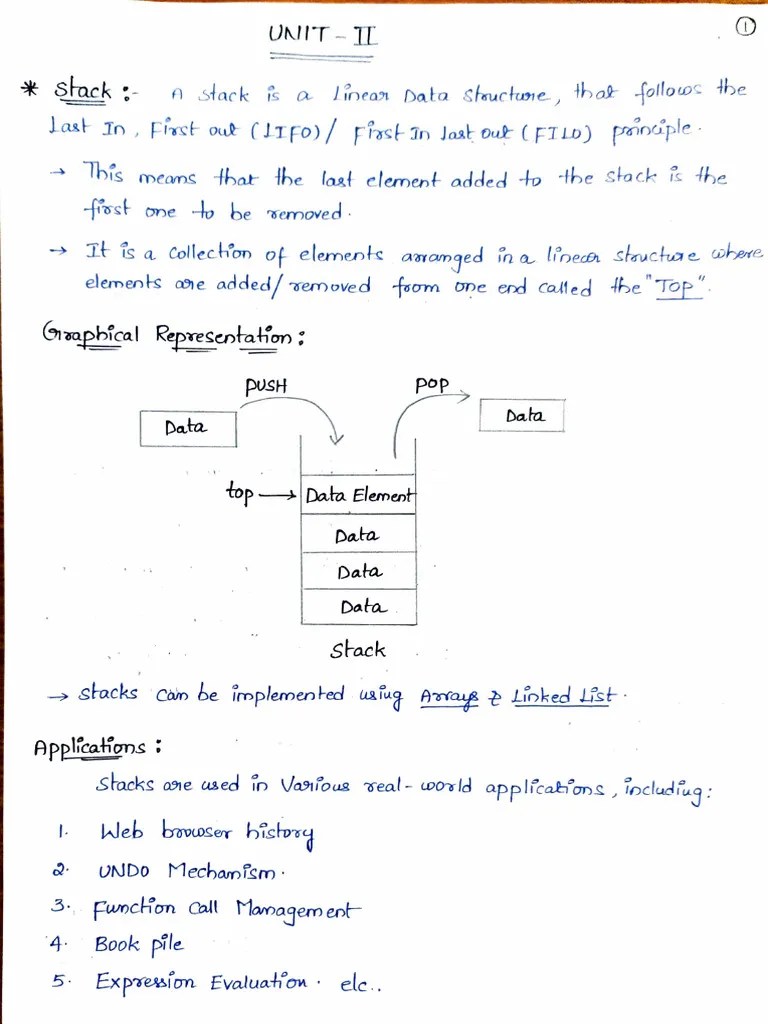 UNIT - II
①
* Stack :- A stack is a linear Data Structure, that follows the
Last In, First out (LIFO) / First In last out (FILO) principle.
→ This means that the last element added to the stack is the
first one to be removed.
→ It is a collection of elements arranged in a linear structure where
elements are added/removed from one end called the "TOP".
Graphical Representation :
PUSH
POP
Data
Data
top → Data Element
Data
Data
Data
Stack
→ Stacks can be implemented using Arrays & Linked List.
Applications :
Stacks are used in Various real-world applications, including:
1. Web browser history
2. UNDO Mechanism.
3. Function Call Management
4. Book pile
5. Expression Evaluation. etc..